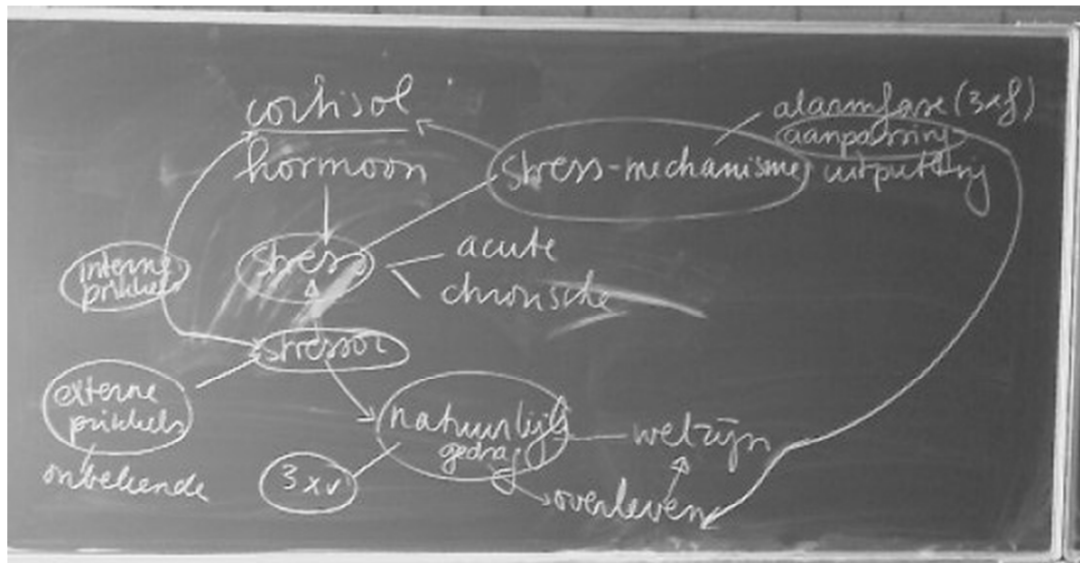 cortisol
hormoon
stress-mechanisme
alaarmfase (3xf)
aanpassing
uitputting
interne
prikkels
stress
acute
chronische
stressor
externe
prikkels
onbekende
natuurlijk
gedrag
3xv
welzijn
overleven